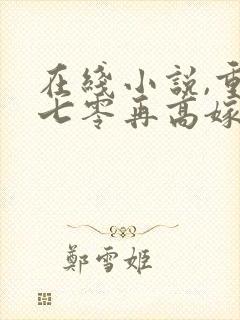 在綫小説,重
七零再高嫁
鄭雪姬